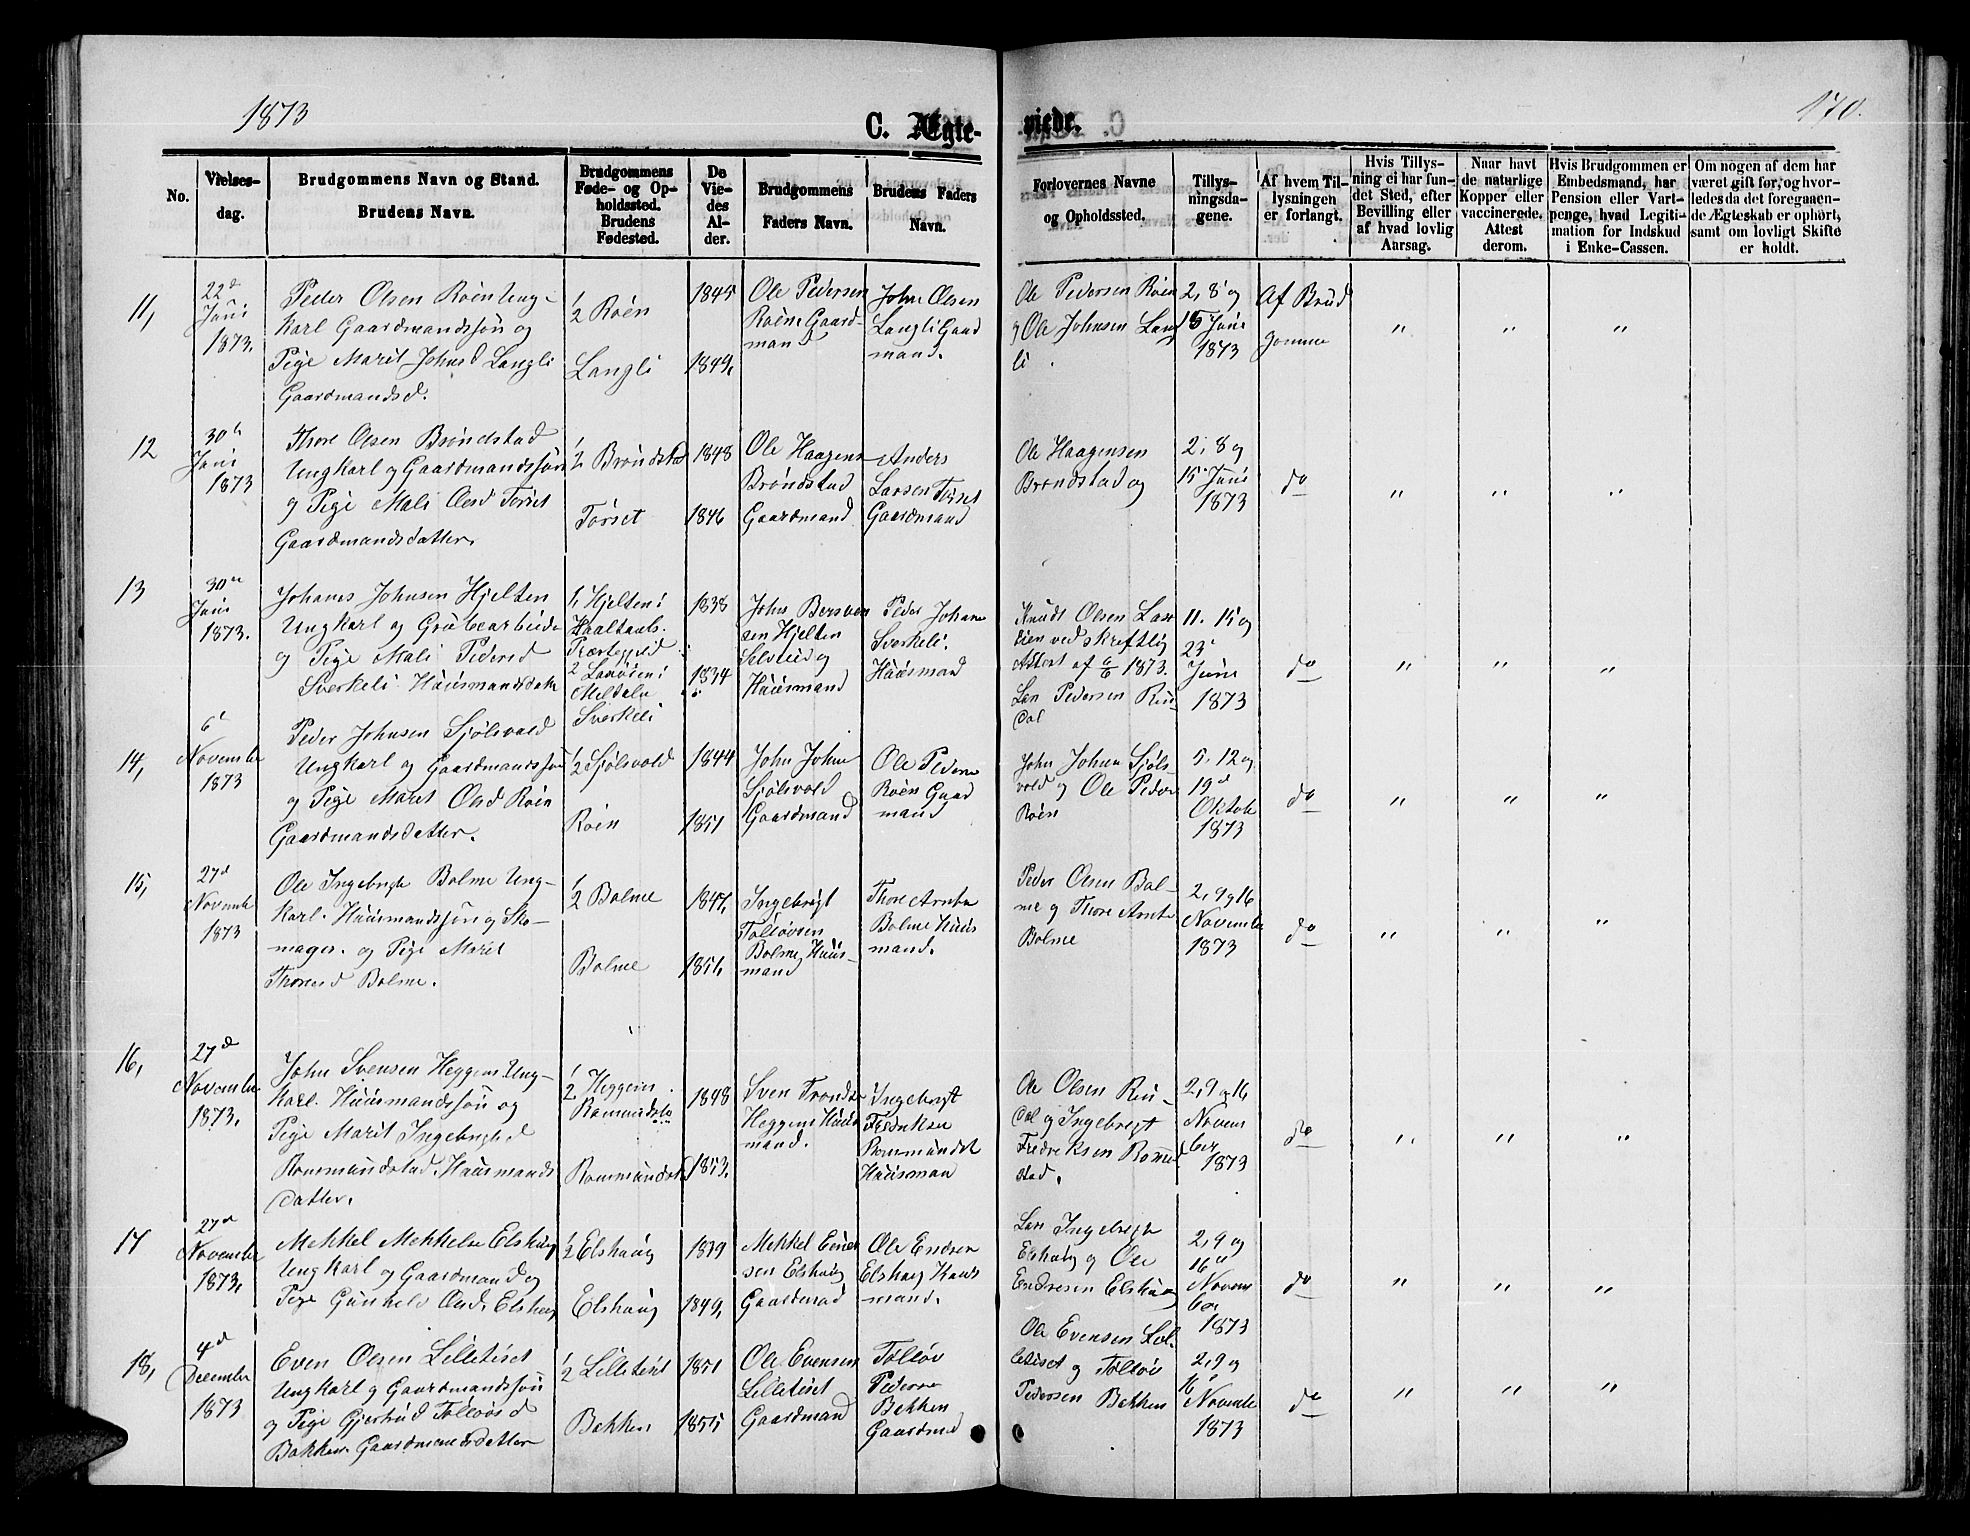 1873
C. Ægte-
viede.
170.
No.
Vielses-
dag.
Brudgommens Navn og Stand.
Brudens Navn.
Brudgommens
Føde- og Op-
holdssted.
Brudens
Fødested.
De
Vie-
des
Al-
der.
Brudgommens
Faders Navn.
Brudens Faders
Navn.
Forlovernes Navne
og Opholdssted.
Tillys-
ningsda-
gene.
Af hvem Til-
lysningen
er forlangt.
Hvis Tillys-
ning ei har fun-
det Sted, efter
Bevilling eller
af hvad lovlig
Aarsag.
Naar havt
de naturlige
Kopper eller
vaccinerede.
Attest
derom.
Hvis Brudgommen er
Embedsmand, har
Pension eller Vart-
penge, hvad Legiti-
mation for Indskud
i Enke-Cassen.
Om nogen af dem har
været gift før, og hvor-
ledes da det foregaaen-
de Ægteskab er ophørt,
samt om lovligt Skifte
er holdt.
11,
22d
Juni
1873.
Peder Olsen Roen Ung-
karl Gaardmandssøn og
Pige Marit Johnsd Langli
Gaardmandsd.
1/2 Roen
Langli
1845
1849,
Ole Pedersen
Roen Gaard-
mand
John Olsen
Langli Gaard
mand.
Ole Pedersen Roen
g Ole Johnsen Lang
li.
2, 8 og
15 Juni
1873
Af Brud
gomme
" " "
12
30
Juni
1873
Thore Olsen Brøndstad
Ungkarl og Gaardmandssøn
og Pige Mali Olsd Torset
Gaardmandsdatter.
1/2 Brøndstad
Torset
1848
1846
Ole Haagens
Brøndstad
Gaardmand
Anders
Larsen Torset
Gaardmand
Ole Haagensen
Brøndstad og
2, 8 og
15 Juni
1873
do
" " "
13
30
Juni
1873.
Johanes Johnsen Hjelten
Ungkarl og Grubearbeide
og Pige Mali Pedersd
Sverkeli Huusmandsdatte
1, Hjelten i
2
Meldalen
Sverkeli
1838
1834
John Bersven
sen Hjelten
og
Huusmand
Peder Johane
Sverkeli
Huusmand
Knudt Olsen
ved skreftlig
Attest af 6/6 1873.
Lars Pedersen Ruu-
dal
11. 15 og
23
Juni
1873
do
" " "
14,
6
November
1873
Peder Johnsen Sjølsvold
Ungkarl og Gaardmandssøn
og Pige Marit Olsd Roen
Gaardmandsdatter.
1/2 Sjølsvold
Roen
1844
1851
John John
Sjølsvold
Gaardmand
Ole Peders
Roen Gaard
mand
John Johnsen Sjøls-
vold og Ole Peder
Roen
5, 12 og
19d
Oktobe
1873
do
" " "
15,
27d
Novembe
1873
Ole Ingebrigts Bolme Ung-
karl. Huusmandssøn og Sko-
mager. og Pige Marit
Thoresd Bolme.
1/2 Bolme
Bolme
1847,
1851,
Ingebrigt
Tolløvsen
Bolme Huus-
mand
Thore Arnts
Bolme Huus
mand.
Peder Olsen Bol-
me og Thore Arnts
Bolme
2, 9 g 16
November
1873
do
" " "
16,
27d
November
1873,
John Svensen Heggem Ung-
karl. Huusmandssøn og
Pige Marit Ingebrigtsd
Rommundstad. Huusmands
datter.
1/2 Heggem
Romundsta
Rommundst
1848
1853,
Sven Tronds
Heggem Huus
mand.
Ingebrigt
Fredriksen
Rommundst
Huusman
Ole Olsen Ruu-
dal og Ingebrigt
Fredriksen Romund
stad.
2, 9 og 16
Novem
ber
1873
do
" " "
17
27d
November
1873,
Mekkel Mekkelse Elshaug
Ungkarl og Gaardmand og
Pige Gunhild Olsd. Elshaug
1/2 Elshaug
Elshaug
1849,
Mekkel Einer
sen Elshaug
Gaardmand
Ole Endsen
Elshaug Huus
mand.
Lars Ingebregt
Elshaug og Ole
Endresen Elshaug
2, 9 og
16d
Novem
ber
1873
do
" " "
18,
4d
December
1873
Even Olsen Lilletiset
Ungkarl g Gaardmandssøn
og Pige Gjertrud Tolløvsd
Bakken Gaardmandsdatter
1/2 Lilletiset
Bakken
1851
1855
Ole Evensen
Lilletiset
Gaardmand
Tolløv
Pederse
Bakken
Gaardmad
Ole Evensen Lil-
letiset og Tolløv
Pedersen Bakken
2, 9 og
16
Novembe
1873
do
" " "